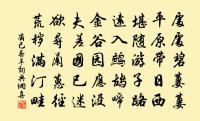 處處碧萋萋
平原帶日西
堪隨遊子路
遠入鷓鴣啼
金谷園應沒
夫差國已迷
欲尋蘭蕙徑
荒穢滿汀畦
詞典網